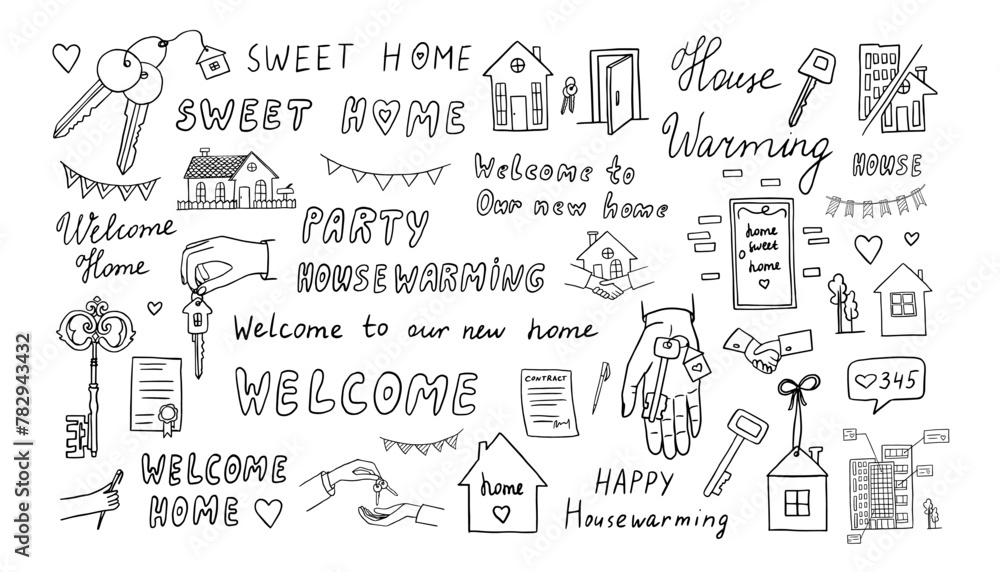 SWEET HOME
SWEET HOME
House
Warming
HOUSE
Welcome to
Our new home
Welcome
Home
PARTY
HOUSEWARMING
home
sweet
home
Welcome to our new home
WELCOME
CONTRACT
345
WELCOME
HOME
home
HAPPY
Housewarming
Adobe Stock | #782943432
Adobe Stock